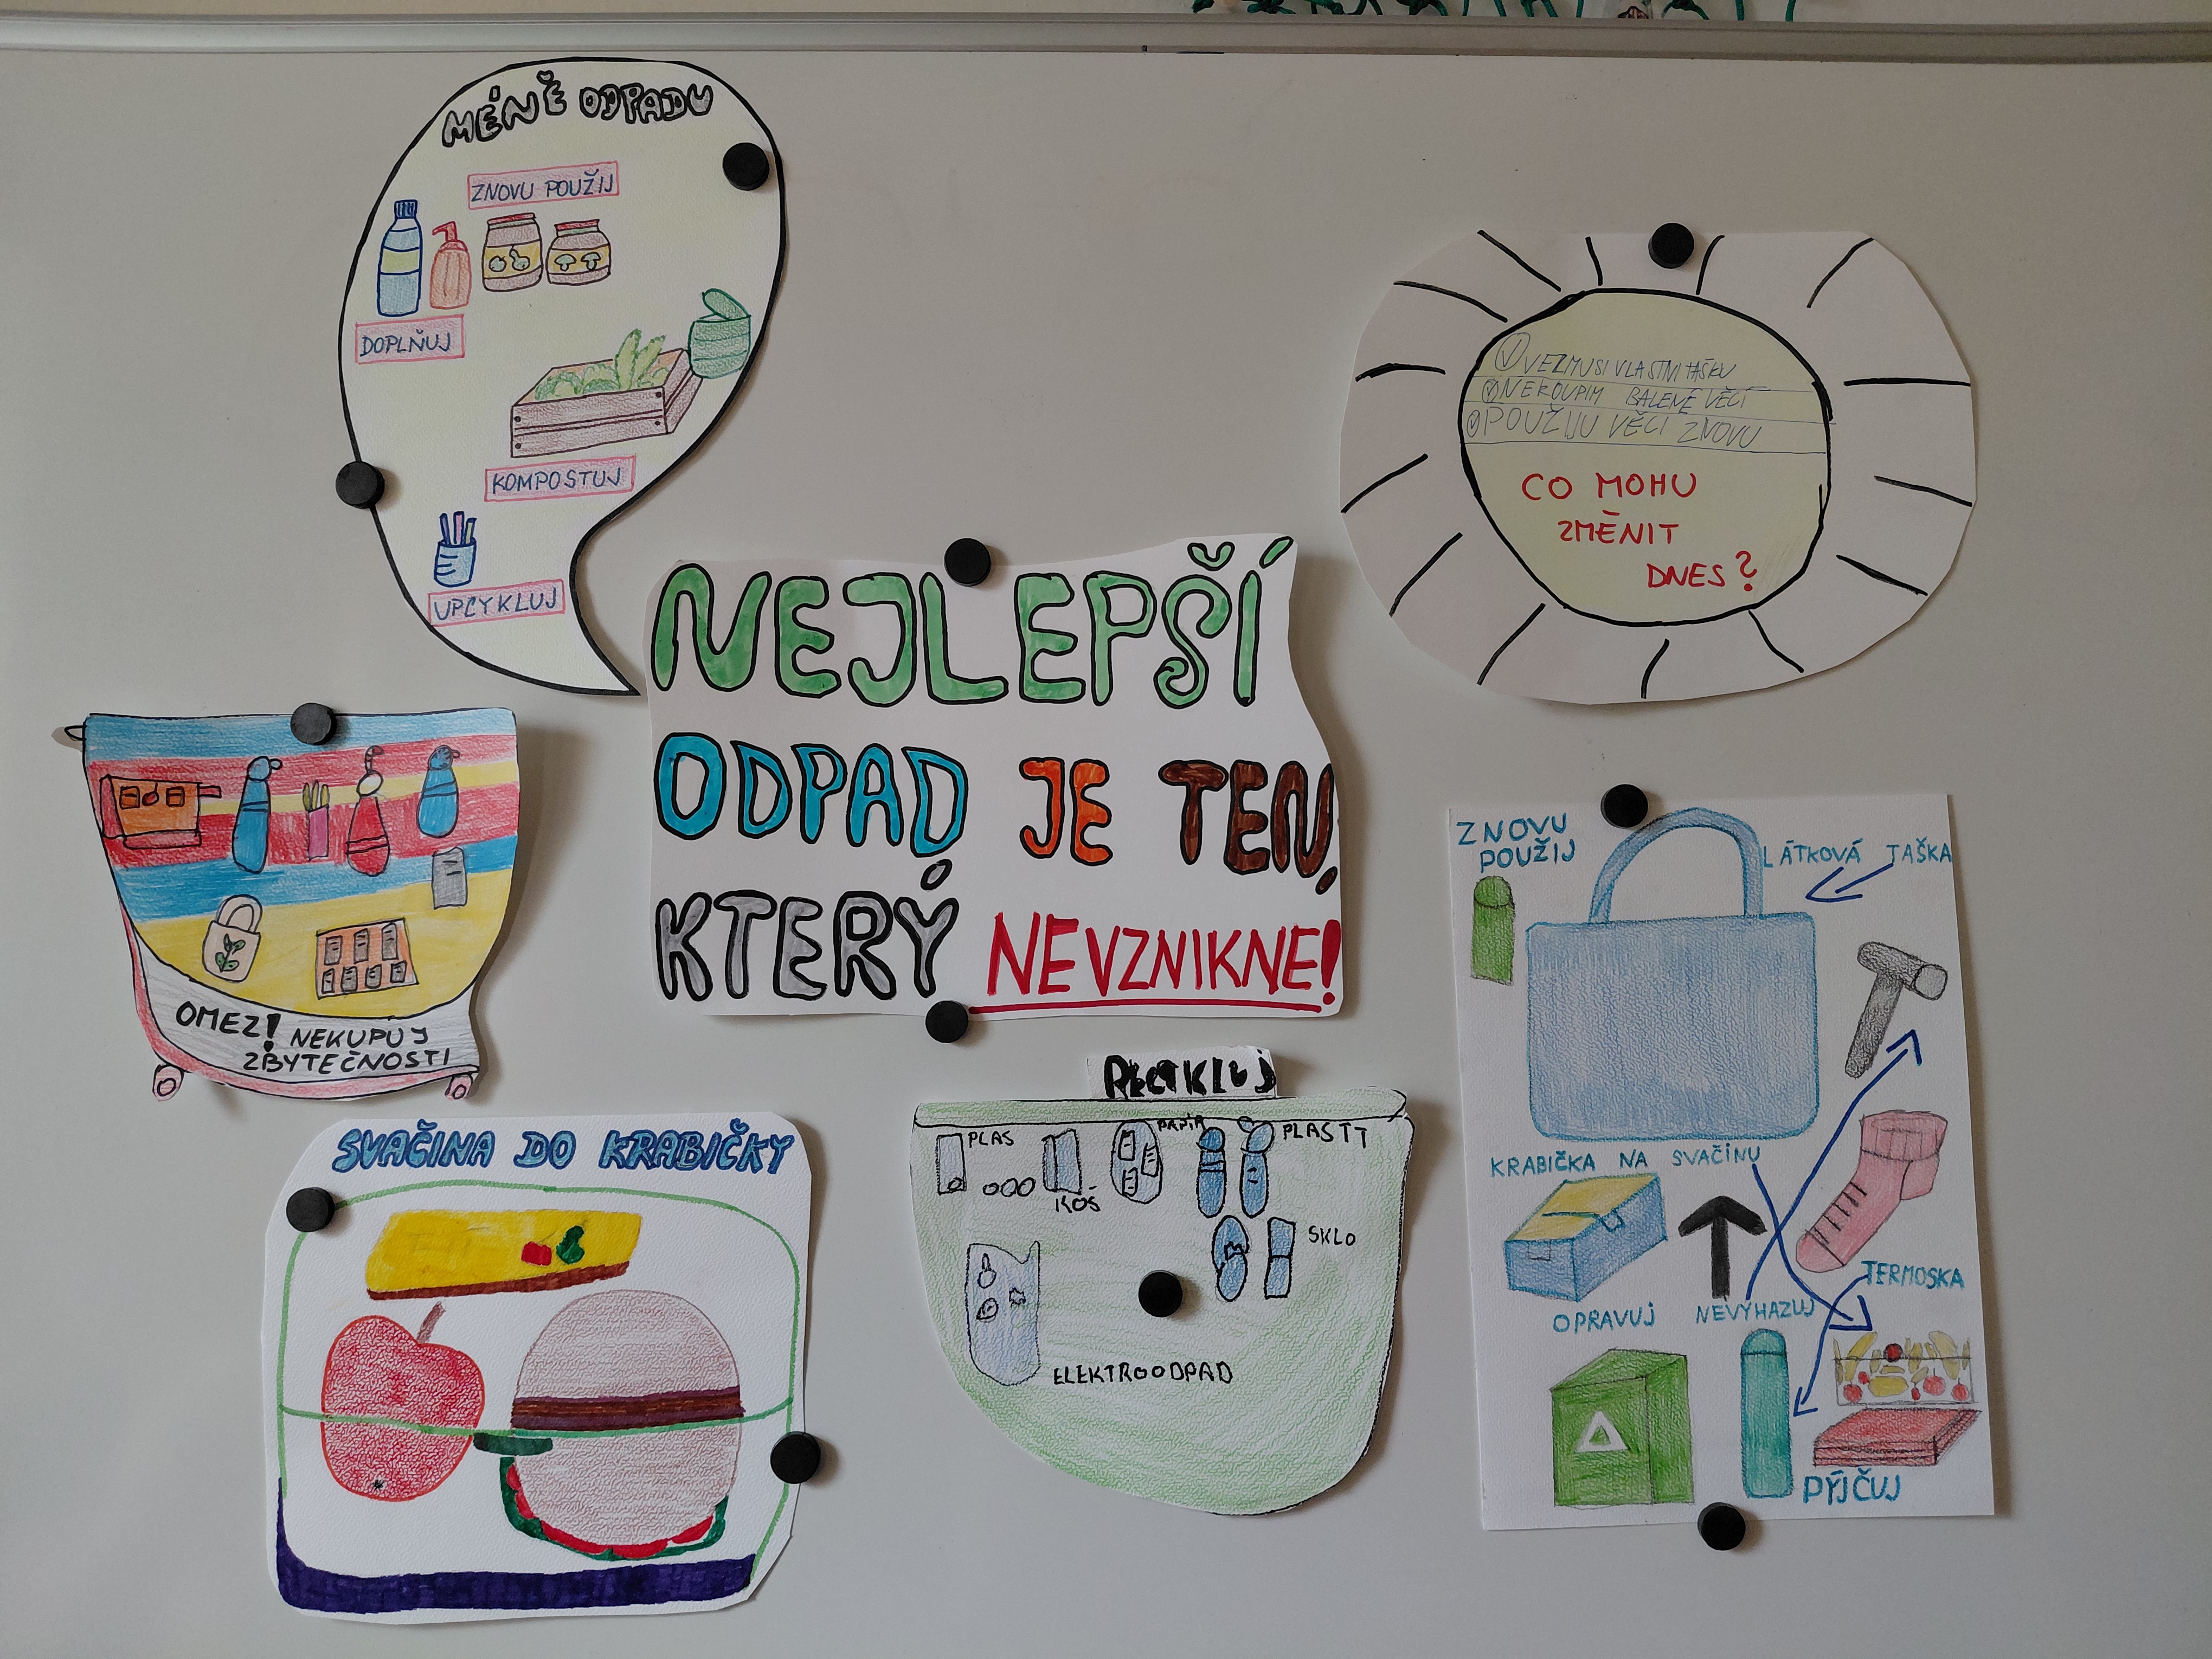 MÉNĚ ODPADU
ZNOVU POUŽIJ
DOPLŇUJ
KOMPOSTUJ
UPCYKLUJ
VEZMU SI VLASTNI TAŠKU
NEKOUPIM BALENÉ VĚCÍ
POUŽIJU VĚCI ZNOVU
CO MOHU
ZMĚNIT
DNES?
NEJLEPŠÍ
ODPAD JE TEN,
KTERÝ NEVZNIKNE!
OMEZ! NEKUPUJ
ZBYTEČNOSTI
SVAČINA DO KRABIČKY
RECYKLUJ
PLAS
PAPÍR
PLASTT
KOŠ
SKLO
ELEKTROODPAD
ZNOVU
POUŽIJ
LÁTKOVÁ TAŠKA
KRABIČKA NA SVAČINU
TERMOSKA
OPRAVUJ
NEVYHAZUJ
PŸJČUJ